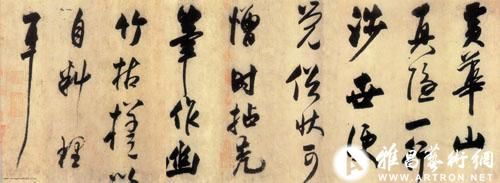 黄華山
真隐一行
涉世便
覺俗狀可
憎時拈禿
筆作幽
竹枯槎以
自料理
耳
雅昌藝術網
WWW.ARTRON.NET